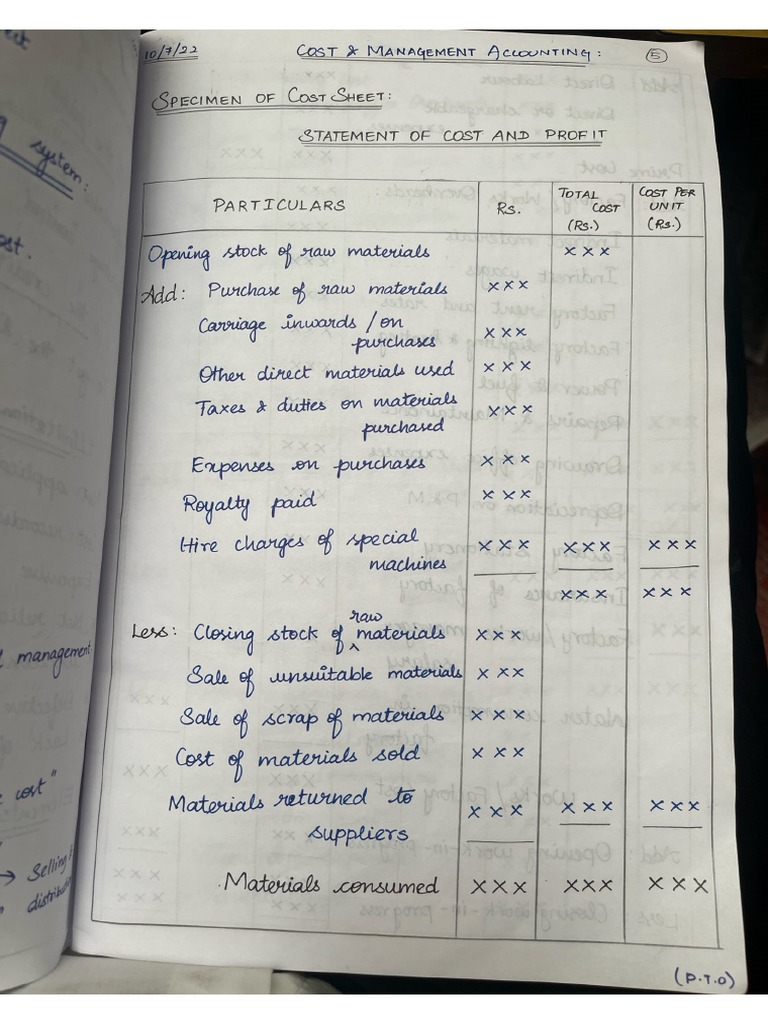 10/7/22 COST & MANAGEMENT ACCOUNTING: 5
SPECIMEN OF COST SHEET:
STATEMENT OF COST AND PROFIT
PARTICULARS Rs. TOTAL COST (Rs.) COST PER UNIT (Rs.)
Opening stock of raw materials xxx
Add: Purchase of raw materials xxx
Carriage inwards / on
purchases xxx
Other direct materials used xxx
Taxes & duties on materials
purchased xxx
Expenses on purchases xxx
Royalty paid xxx
Hire charges of special
machines xxx xxx xxx
xxx xxx
Less: Closing stock of raw materials xxx
Sale of unsuitable materials xxx
Sale of scrap of materials xxx
Cost of materials sold xxx
Materials returned to
suppliers xxx xxx xxx
Materials consumed xxx xxx xxx
(P.T.O)
system:
management
cost"
→ Selling